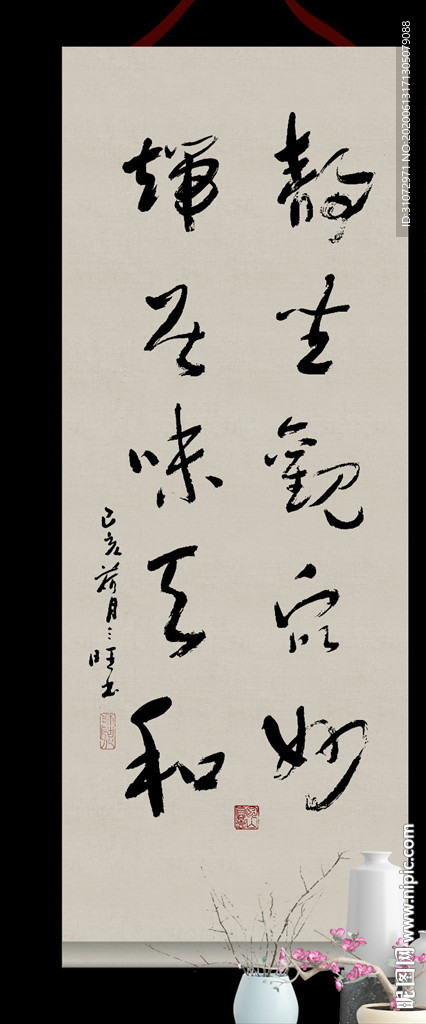 静坐觀众妙
端居味天和
己亥荷月三旺书
ID:31072971 NO:20200613171305079088
昵图网 www.nipic.com